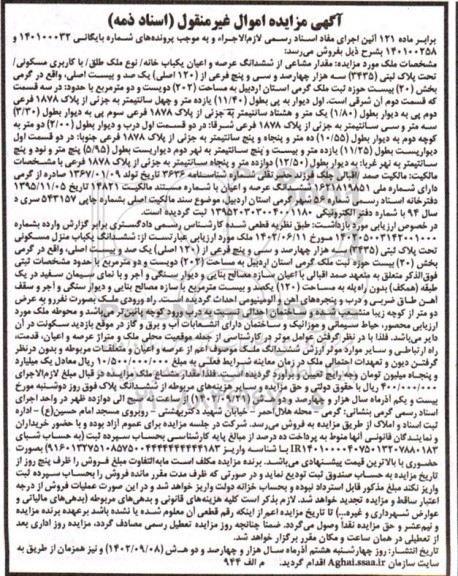 آگهی مزایده اموال غیرمنقول (اسناد ذمه)
برابر ماده ۱۲۱ آئین اجرای مفاد اسناد رسمی لازم‌الاجراء و به موجب پرونده‌های شماره بایگانی ۱۴۰۱۰۰۰۳۲ و
۱۴۰۱۰۰۲۵۸ بشرح ذیل بفروش می‌رسد:
مشخصات ملک مورد مزایده: مقدار مشاعی از ششدانگ عرصه و اعیان یکباب خانه/ نوع ملک طلق/ با کاربری مسکونی/
تحت پلاک ثبتی (۳۴۳۵) سه هزار چهارصد و سی و پنج فرعی از (۱۲۰ اصلی) یک صد و بیست اصلی، واقع در گرمی
بخش (۲۰) بیست حوزه ثبت ملک گرمی استان اردبیل به مساحت (۲۰۲) دویست و دو مترمربع با حدود: در سه قسمت
که قسمت دوم آن شرقی است. اول دیوار به پی بطول (۱۱/۴۰) یازده متر و چهل سانتیمتر به جزئی از پلاک ۱۸۷۸ فرعی
دوم پی به دیوار بطول (۱/۸۰) یک متر و هشتاد سانتیمتر به جزئی از پلاک ۱۸۷۸ فرعی سوم پی به دیوار بطول (۳/۳۰)
سه متر و سی سانتیمتر به جزئی از پلاک ۱۸۷۸ فرعی شرقا: در دو قسمت اول درب و دیوار بطول (۲/۰۰) دو متر به
کوچه دوم به دیوار بطول (۱۰/۵۵) ده متر و پنجاه و پنج سانتیمتر به جزئی از پلاک ۱۸۷۸ فرعی جنوبا: در دو قسمت اول
دیواریست بطول (۱۱/۲۵) یازده متر و بیست و پنج سانتیمتر به نهر دوم دیواریست بطول (۵/۹۵) پنج متر و نود و پنج
سانتیمتر به نهر غربا: به دیوار بطول (۱۲/۵۰) دوازده متر و پنجاه سانتیمتر به جزئی از پلاک ۱۸۷۸ فرعی با مشخصات
مالکیت: مالکیت صمد اقبالی چلک فرزند حضرتقلی شماره شناسنامه ۳۶۳۶ تاریخ تولد ۱۳۶۷/۰۱/۰۹ صادره از گرمی
دارای شماره ملی ۱۶۲۱۸۱۹۸۵۱ ششدانگ عرصه و اعیان با شماره مستند مالکیت ۱۴۸۲۱ تاریخ ۱۳۹۵/۱۱/۰۵
دفترخانه اسناد رسمی شماره ۵۶ شهر گرمی استان اردبیل، موضوع سند مالکیت اصلی بشماره چاپی ۵۴۳۱۵۷ سری د
سال ۹۴ با شماره دفتر الکترونیکی ثبت گردیده است.
در خصوص ارزیابی مورد بازداشت: طبق نظریه قطعی شده کارشناس رسمی دادگستری برابر گزارش وارده بشماره
مورخ ۱۴۰۲/۰۶/۱۱ ملک مورد ارزیابی عبارتست از: ششدانگ یکباب منزل مسکونی
تحت پلاک ثبتی (۳۴۳۵) سه هزار چهارصد و سی و پنج فرعی از (۱۲۰ اصلی) یک صد و بیست اصلی، واقع در گرمی
بخش (۲۰) بیست حوزه ثبت ملک گرمی استان اردبیل به مساحت (۲۰۲) دویست و دو مترمربع با حدود مشخصات ثبتی
فوق‌الذکر متعلق به متعهد صمد اقبالی با اعیان سازه مصالح بنایی و دیوار سنگی و آجر و با نمای سیمان سفید در یک
طبقه (همکف) بدون راه‌پله به مساحت (۱۲۰) یکصد و بیست مترمربع با سازه مصالح بنایی و دیوار سنگی و آجر و سقف
آهن طاق ضربی و درب و پنجره‌های آهن و آلومینیومی احداث گردیده است. راه ورودی ملک بصورت نفررو به عرض
دو متر از کوچه زیبا منشعب شده و ساختمان احداثی نسبت به درب ورود کوچه پائین‌تر می‌باشد و محوطه ملک مورد
ارزیابی محصور، حیاط سیمانی و موزائیک و ساختمان دارای انشعابات آب و برق و گاز در موقع بازدید سکونت در آن
دایر می‌باشد. فلذا با در نظر گرفتن عوامل موثر در کارشناسی از جمله موقعیت محلی ملک و متراژ عرصه و اعیان، قدمت،
راه ارتباطی و سایر موارد موثر ارزش ششدانگ ملک موصوف اعم از عرصه و اعیان و متعلقات مربوطه و بدون درنظر
گرفتن دیون و تعهدات احتمالی ملک در زمان معاینه و شرایط فعلی به مبلغ ۱۰/۵۰۰/۰۰۰/۰۰۰ ریال معادل یک میلیارد
و پنجاه میلیون تومان تعیین و برآورد گردیده است. فلذا مقدار مشاع ملک مورد مزایده در قبال مبلغ لازم‌الاجرای
۴۰۰/۰۰۰/۰۰۰ ریال با حقوق دولتی و حق مزایده و سایر هزینه‌های مربوطه از ششدانگ پلاک فوق روز دوشنبه مورخ
بیست و یکم آذرماه سال هزار و چهارصد و دو از ساعت ۹ صبح الی دوازده ظهر در واحد اجرای
اسناد رسمی گرمی بنشانی: گرمی - محله هلال‌احمر - خیابان شهید دکتربهشتی - روبروی مسجد امام حسین(ع) - اداره
ثبت اسناد و املاک از طریق مزایده به فروش می‌رسد. شرکت در جلسه مزایده برای عموم آزاد بوده و با حضور خریداران
و نمایندگان قانونی آنها منوط به پرداخت ده درصد از مبلغ پایه کارشناسی بحساب سپرده ثبت (به حساب شبای
بصورت
حضوری با بالاترین قیمت پیشنهادی می‌باشد. برنده مزایده مکلف است مابه‌التفاوت مبلغ فروش را ظرف پنج روز از
تاریخ مزایده به حساب صندوق ثبت تودیع نماید و در صورتی که ظرف مدت مقرر مانده فروش را بحساب سپرده ثبت
واریز نکند مبلغ مذکور قابل استرداد نبوده و بحساب خزانه دولت واریز خواهد شد و در این صورت عملیات فروش از درجه
اعتبار ساقط و مزایده تجدید خواهد شد. لازم بذکر است کلیه هزینه‌های قانونی و بدهی‌های مربوطه (بدهی‌های مالیاتی و
عوارض شهرداری و غیره..) تا تاریخ مزایده اعم از اینکه رقم قطعی آن معلوم شده یا نشده باشد برعهده برنده مزایده
و نیم‌عشر و حق مزایده نقدا وصول می‌گردد. ضمنا چنانچه روز مزایده تعطیل رسمی مصادف گردد، مزایده روز اداری بعد
از تعطیلی در همان ساعت و مکان مقرر برگزار خواهد شد.
تاریخ انتشار: روز چهارشنبه هشتم آذرماه سال هزار و چهارصد و دو ه‍.ش (۱۴۰۲/۰۹/۰۸) و نیز همزمان از طریق به
سایت سازمان Aghai.ssaa.ir اقدام گردید. م الف ۹۴۴